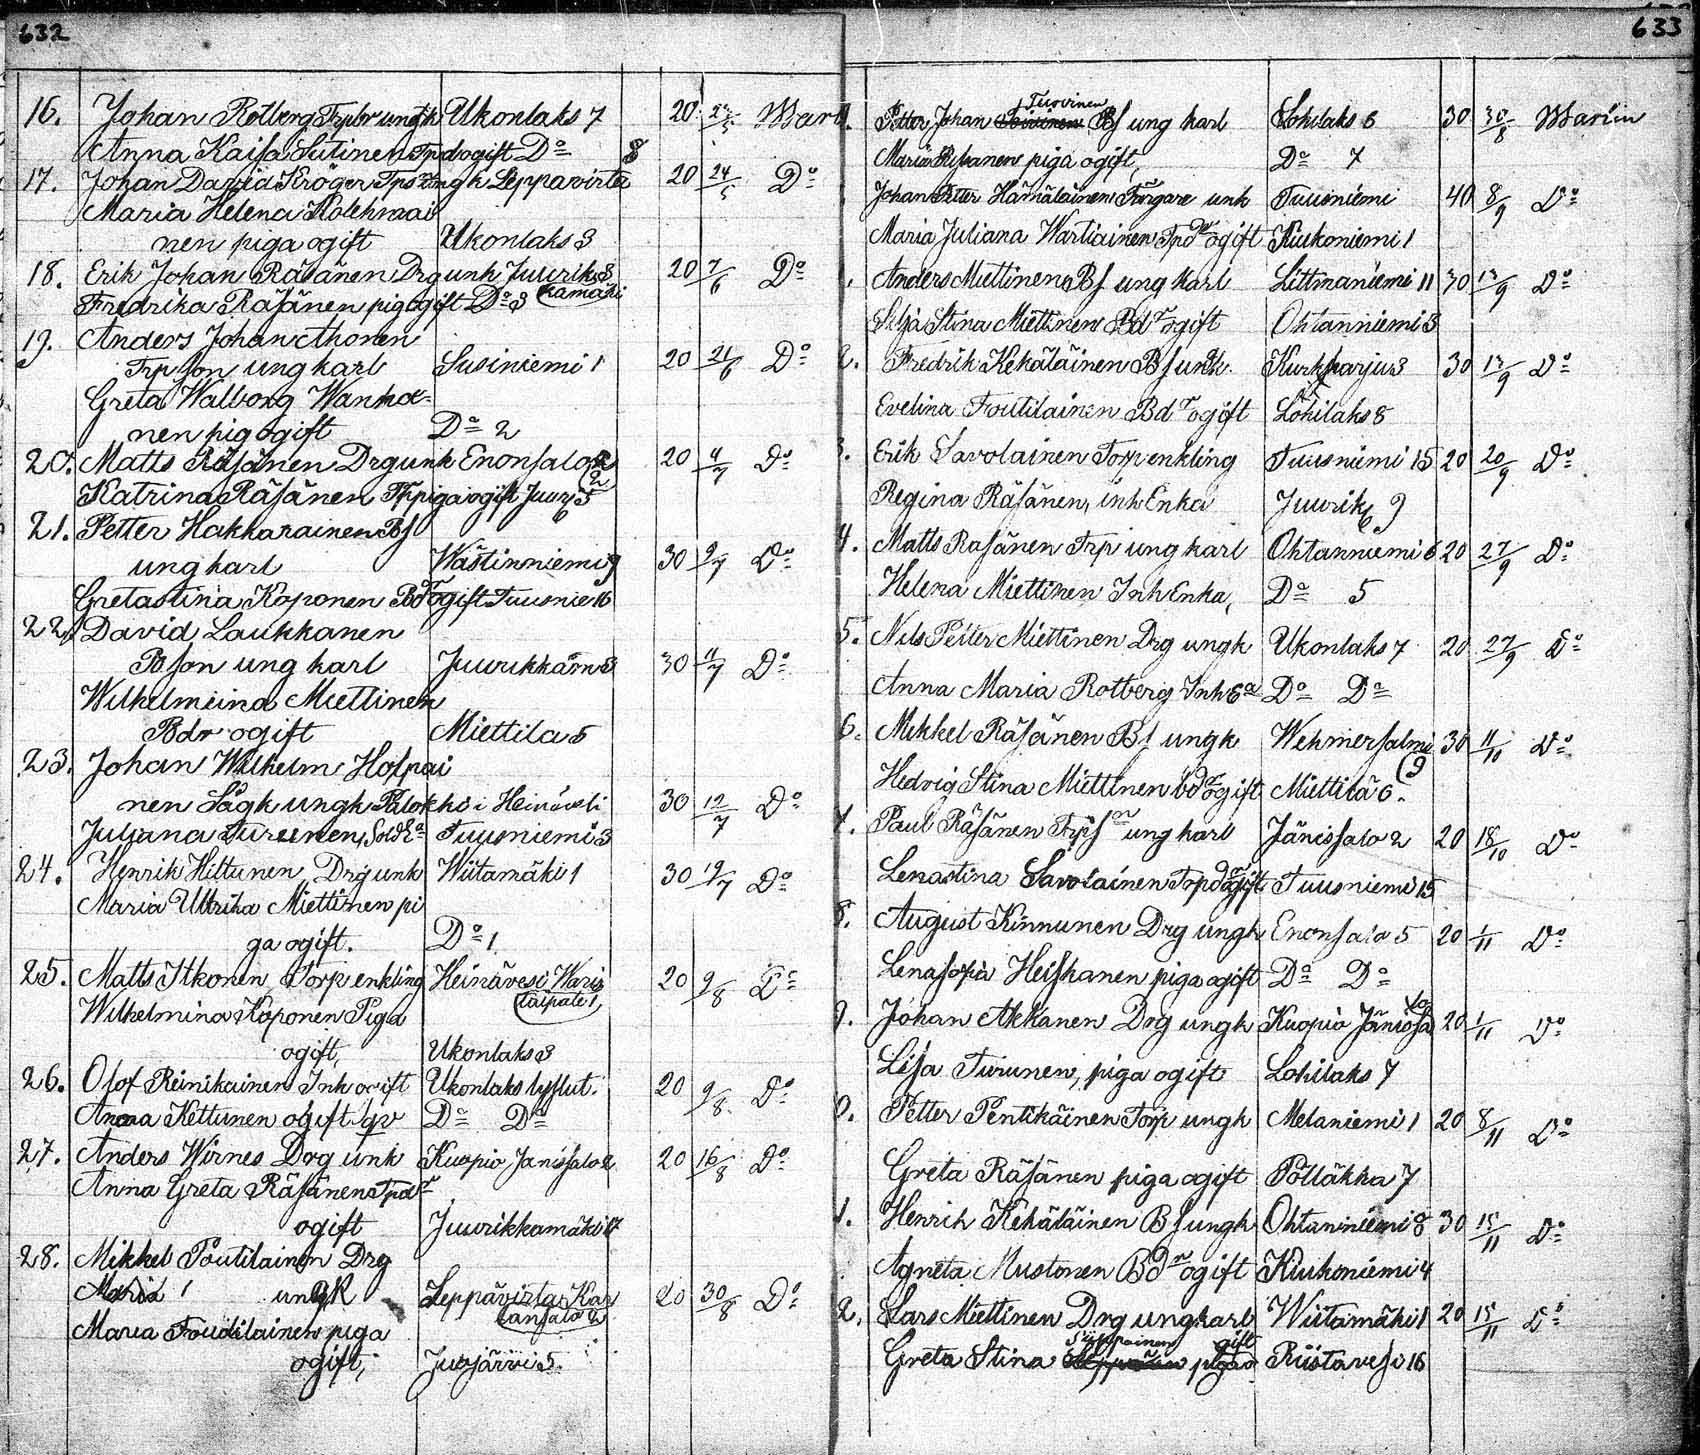 632
16. Johan Rotberg Trpbr ungk Ukonlaks 7 20 Mart
Anna Kaisa Sutinen Trpd ogift Do 8
17. Johan David Kröger ungk Leppävirta 20 24/5 Do
Maria Helena Kolehmai
nen piga ogift Ukonlaks 3
18. Erik Johan Räsänen Drg unk Juurik 8 20 7/6 Do
Fredrika Räsänen pig ogift Do 3 kamäki
19. Anders Johan Ahonen
Trp son ung karl Susiniemi 1 20 21/6 Do
Greta Walborg Wanha-
nen pig ogift Do 2
20. Matts Räsänen Drg unk Enonsalo 2 20 4/7 Do
Katrina Räsänen Trp piga ogift Juur 5
21. Petter Hakkarainen Bs
ung karl Wästinniemi 9 30 9/7 Do
Gretastina Koponen Bdr ogift Tuusnie 16
22. David Laukkanen
Bson ung karl Juurikkam 3 30 11/7 Do
Wilhelmina Miettinen
Bdr ogift Miettila 5
23. Johan Wilhelm Holpai
nen Sågk ungk Palokki i Heinävesi 30 12/7 Do
Juliana Turunen, Sold Ea Tuusniemi 3
24. Henrik Hiltunen, Drg unk Wiitamäki 1 30 19/7 Do
Maria Ulrika Miettinen pi
ga ogift. Do 1
25. Matts Itkonen Torp enkling Heinävesi Waris 20 9/8 Do
Wilhelmina Koponen Piga taipale 1,
ogift, Ukonlaks 3
26. Olof Reinikainen Inh ogift Ukonlaks lysslut. 20 9/8 Do
Anna Kettunen ogift qv Do Do
27. Anders Wirnes Drg unk Kuopio Janissalo 2 20 16/8 Do
Anna Greta Räsänen Tpdr
ogift Juurikkamäki 17
28. Mikkel Poutilainen Drg
ungk Leppävirta Kar 20 30/8 Do
Maria Toutilainen piga tansalo 2
ogift, Juojärvi 5
633
Petter Johan Turvinen Bs ung karl Lohilaks 6 30 30/8 Martin
Maria piga ogift, Do 7
Johan Petter Hämäläinen Färgare unk Tuusniemi 40 8/9 Do
Maria Juliana Wartiainen Tpdr ogift Kiukoniemi 1
Anders Miettinen Bs ung karl Littmaniemi 11 30 13/9 Do
Stina Miettinen Bdr ogift Ohtanniemi 5
2. Fredrik Kekäläinen Bs unk. Kurkharju 3 30 13/9 Do
Evelina Toutilainen Bdr ogift Lohilaks 8
3. Erik Savolainen Torp enkling Tuusniemi 15 20 20/9 Do
Regina Räsänen, inh Enka Juurik 9
4. Matts Räsänen Trp ung karl Ohtanniemi 6 20 27/9 Do
Helena Miettinen Inh Enka, Do 5
5. Nils Petter Miettinen Drg ungk Ukonlaks 7 20 27/9 Do
Anna Maria Rotberg Inh Ea Do Do
6. Mikkel Räsänen Bs ungk Wehmersalmi 9 30 11/10 Do
Hedvig Stina Miettinen bdr ogift Miettilä 6.
7. Paul Räsänen Trps on ung karl Jänissalo 2 20 18/10 Do
Lenastina Savolainen Trpdr ogift Tuusniemi 15
8. August Kinnunen Drg ungk Enonsalo 5 20 1/11 Do
Lenasofia Heiskanen piga ogift Do Do
9. Johan Akkanen Drg ungk Kuopio Jänissalo 20 1/11 Do
Lisa Turunen, piga ogift Lohilaks 7
0. Petter Pentikäinen Torp ungk Melaniemi 1 20 8/11 Do
Greta Räsänen piga ogift Pölläkka 7
1. Henrik Kekäläinen Bs ungk Ohtanniemi 8 30 15/11 Do
Agneta Mustonen Bdr ogift Kiukoniemi 4
2. Lars Miettinen Drg ung karl Wiitamäki 1 20 15/11 Do
Greta Stina piga ogift Riistavesi 16